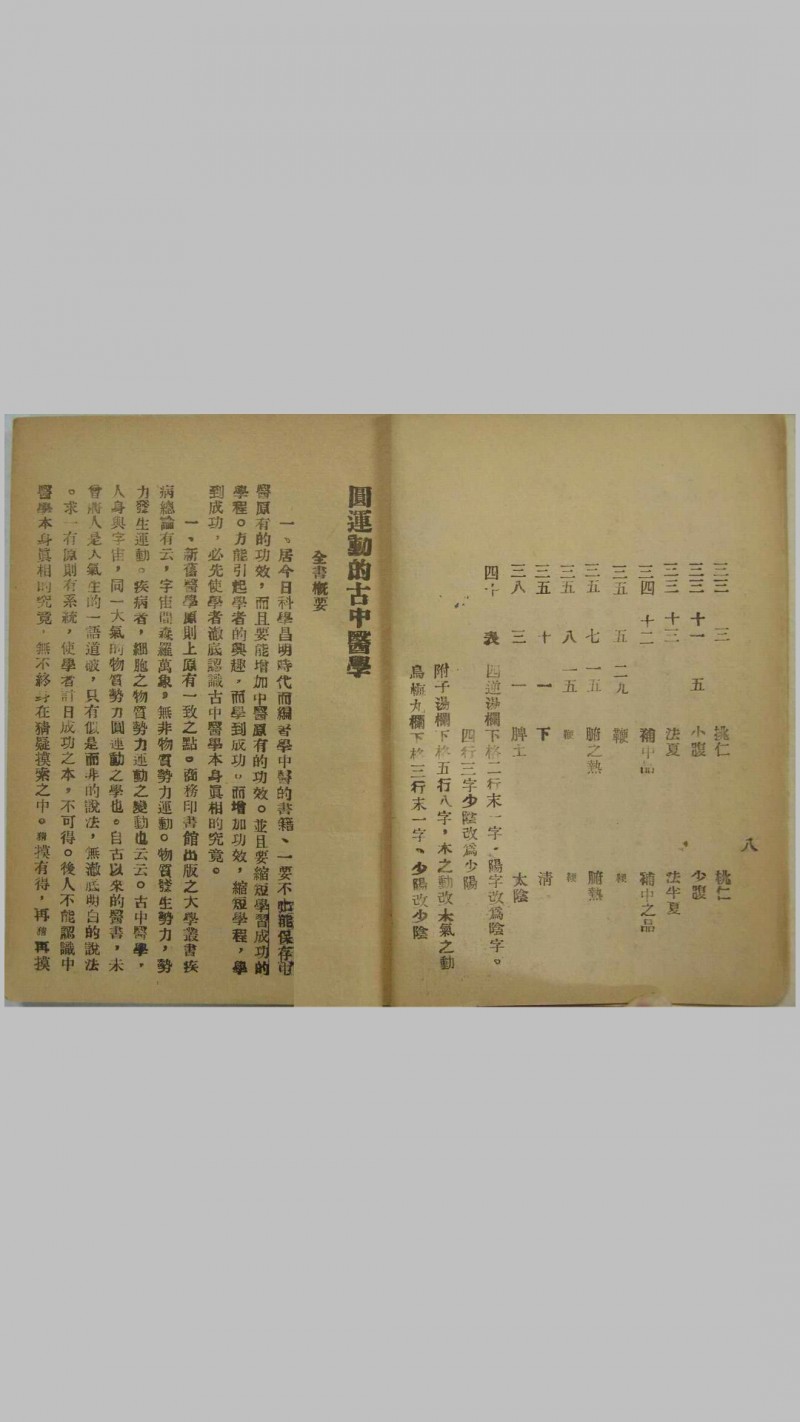 八
三三 三 桃仁 桃仁
三三 十一 五 小腹 少腹
三三 十三 法夏 法半夏
三四 十二 補中品 補中之品
三五 五 二九
三五 七 一五 腑之熱 腑熱
三五 八 一五
三五 十 一 下 淸
三八 三 一 脾土 太陰
四十 表 四逆湯欄下格二行末一字,陽字改爲陰字。
四行三字少陰改爲少陽
附子湯欄下格五行八字,木之動改木氣之動
烏梅丸欄下格三行末一字、少陽改少陰
圓運動的古中醫學
全書概要
一、居今日科學昌明時代而編著學中醫的書籍、一要不能保存中
醫原有的功效,而且要能增加中醫原有的功效。並且要縮短學習成功的
學程。方能引起學者的興趣,而學到成功。而增加功效,縮短學程,學
到成功,必先使學者澈底認識古中醫學本身眞相的究竟。
一、新舊醫學原則上原有一致之點。商務印書館出版之大學叢書疾
病總論有云,宇宙間森羅萬象,無非物質勢力運動。物質發生勢力,勢
力發生運動。疾病者,細胞之物質勢力運動之變動也云云。古中醫學,
人身與宇宙,同一大氣的物質勢力圓運動之學也。自古以來的醫書,未
曾將人是大氣生的一語道破,只有似是而非的說法,無澈底明白的說法
。求一有原則有系統,使學者計日成功之本,不可得。後人不能認識中
醫學本身眞相的究竟,無不終身在猜疑摸索之中。猜摸有得,再猜再摸